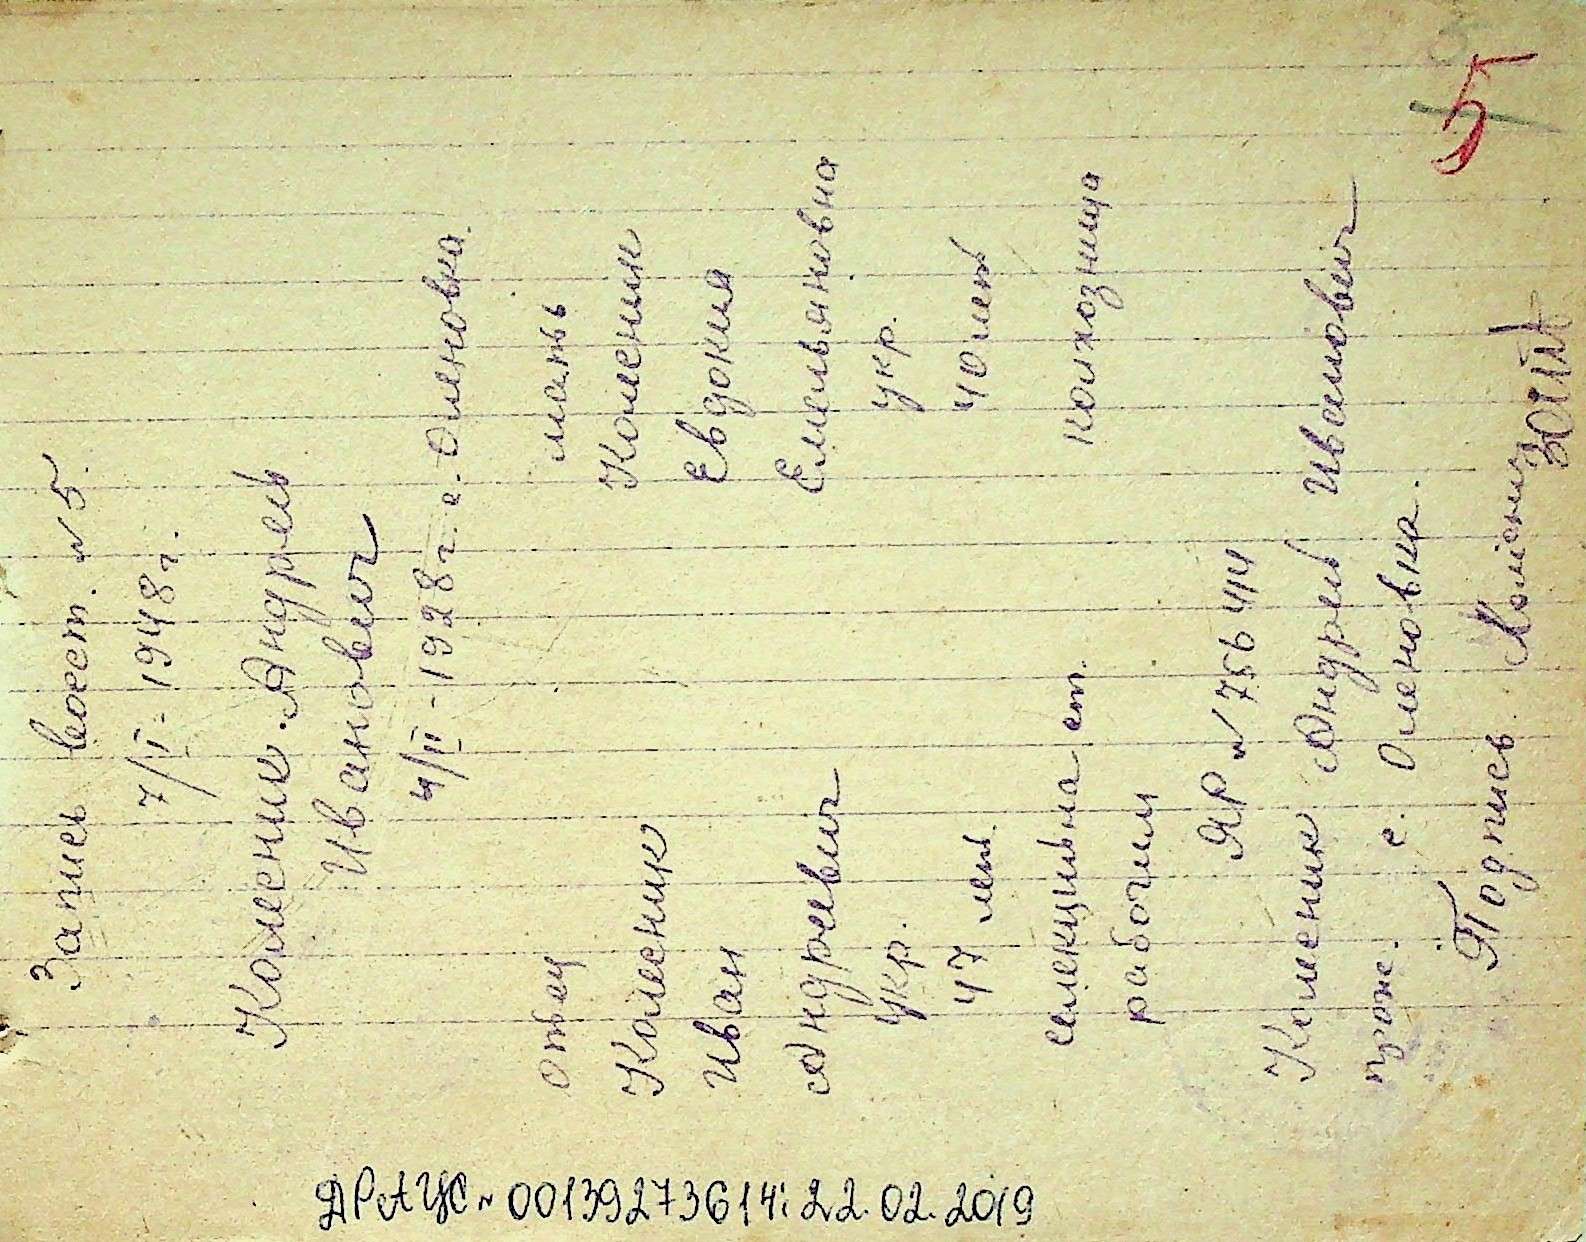 Запись восст. № 5.
7/I - 1948 г.
Колесник Андрей
Иванович
4/II - 1928 г. с. Оленовка.
отец
мать
Колесник
Колесник
Иван
Евдокия
Андреевич
Емельяновна
укр.
укр.
47 лет
40 лет
селекцийна ст.
рабочий
колхозница
ЯР № 756414
Колесник Андрей Иванович
прож. с. Оленовка.
Подпись Колесник
5
ДРАЦС № 00139273614; 22.02.2019